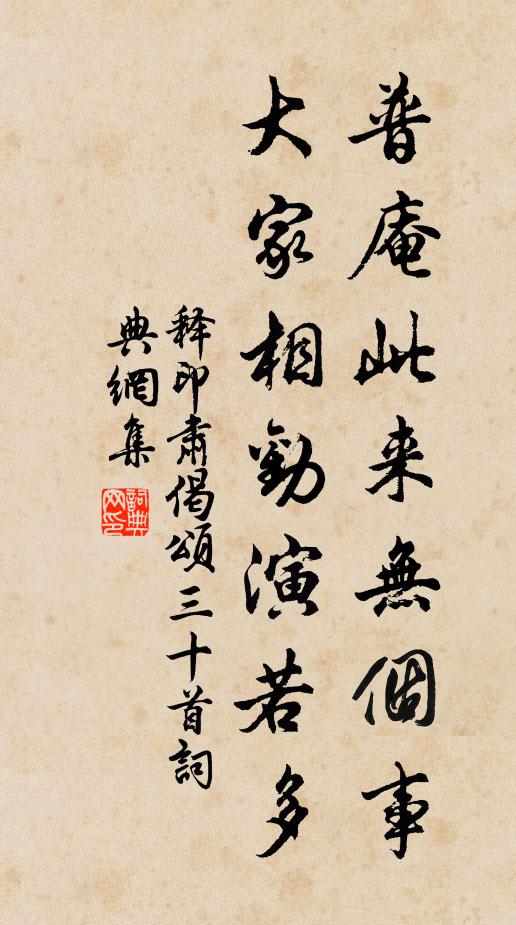 普庵此来無個事
大家相勸演若多
释印肃偈頌三十首詞
典網集
詞典网印